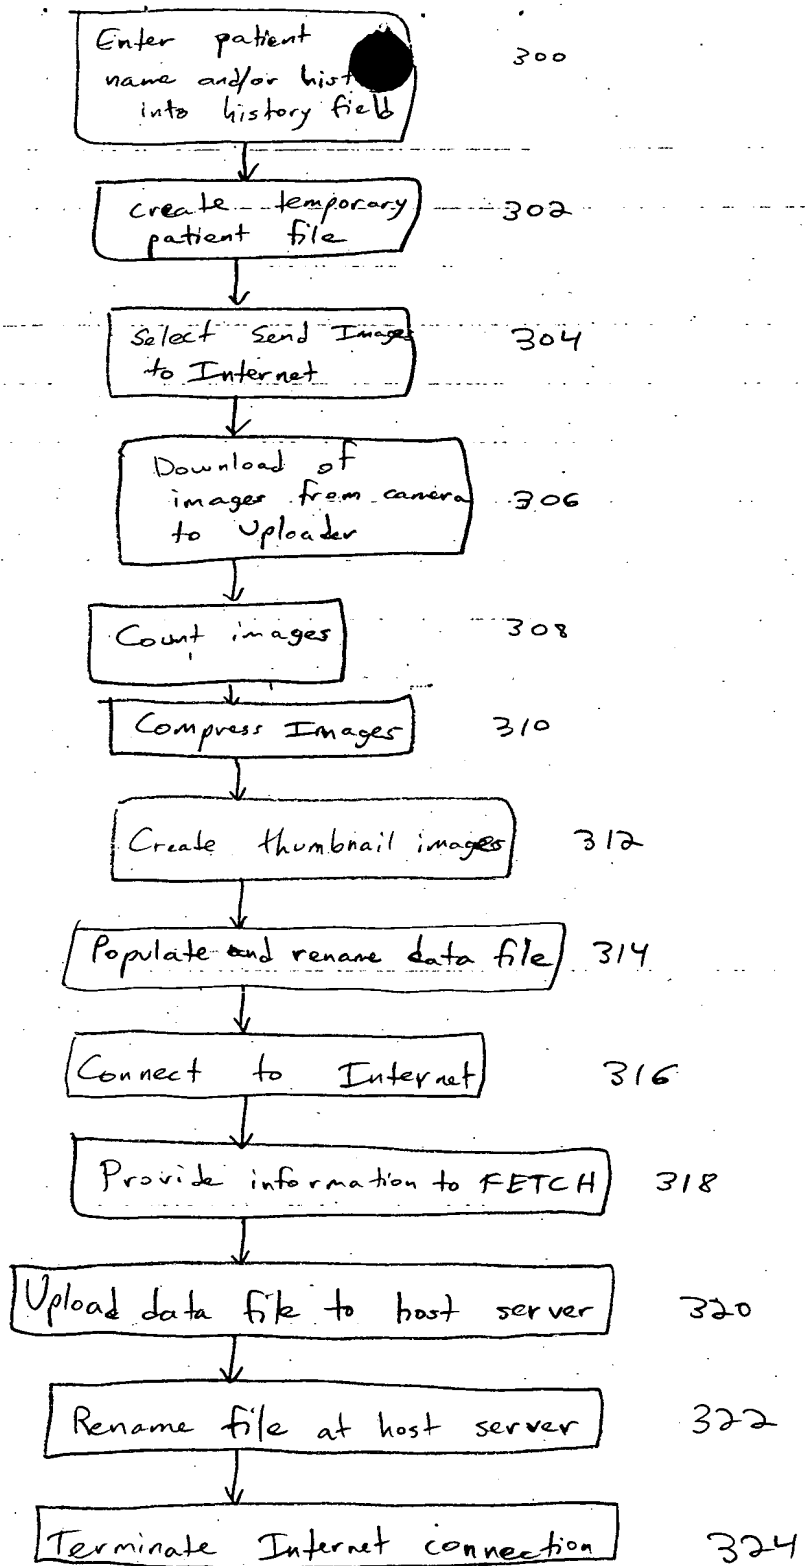 Enter patient 300
name and/or
into history field
create temporary 302
patient file
Select Send Images 304
to Internet
Download of
images from camera 306
to Uploader
Count images 308
Compress Images 310
Create thumbnail images 312
Populate and rename data file 314
Connect to Internet 316
Provide information to FETCH 318
Upload data file to host server 320
Rename file at host server 322
Terminate Internet connection 324